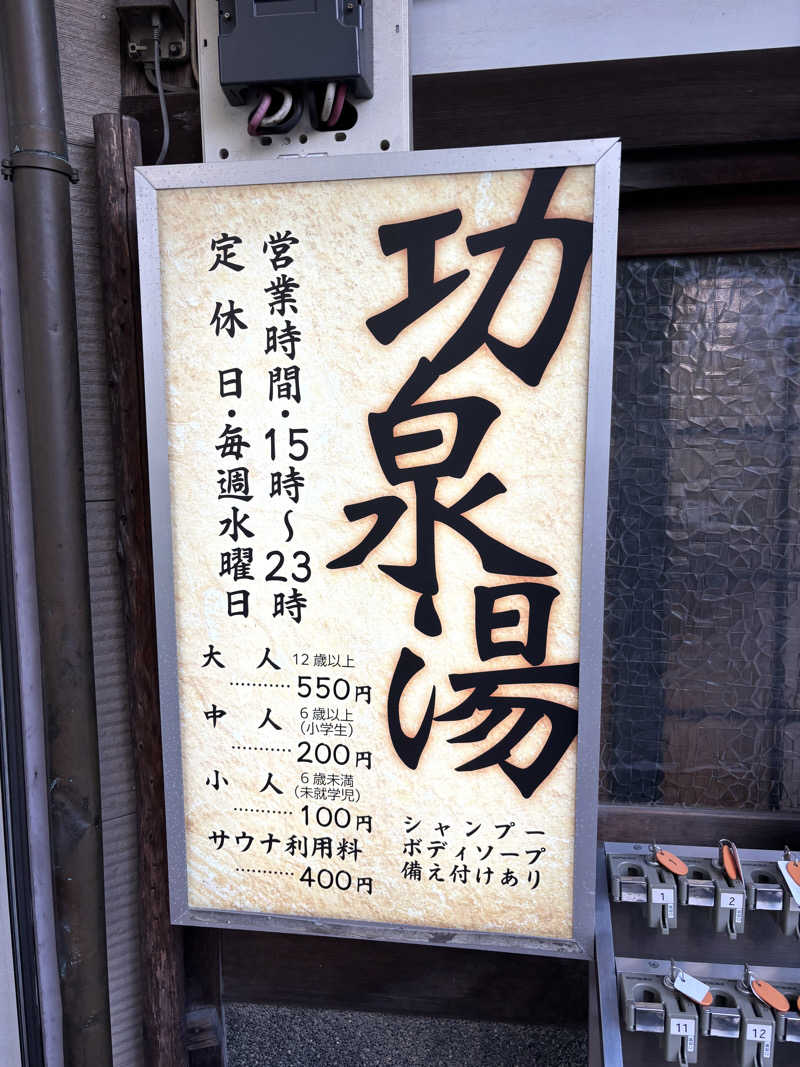 功泉湯
営業時間・15時～23時
定休日・毎週水曜日
大人 12歳以上
…………550円
中人 6歳以上
(小学生)
…………200円
小人 6歳未満
(未就学児)
…………100円
サウナ利用料
…………400円
シャンプー
ボディソープ
備え付けあり
1
2
11
12